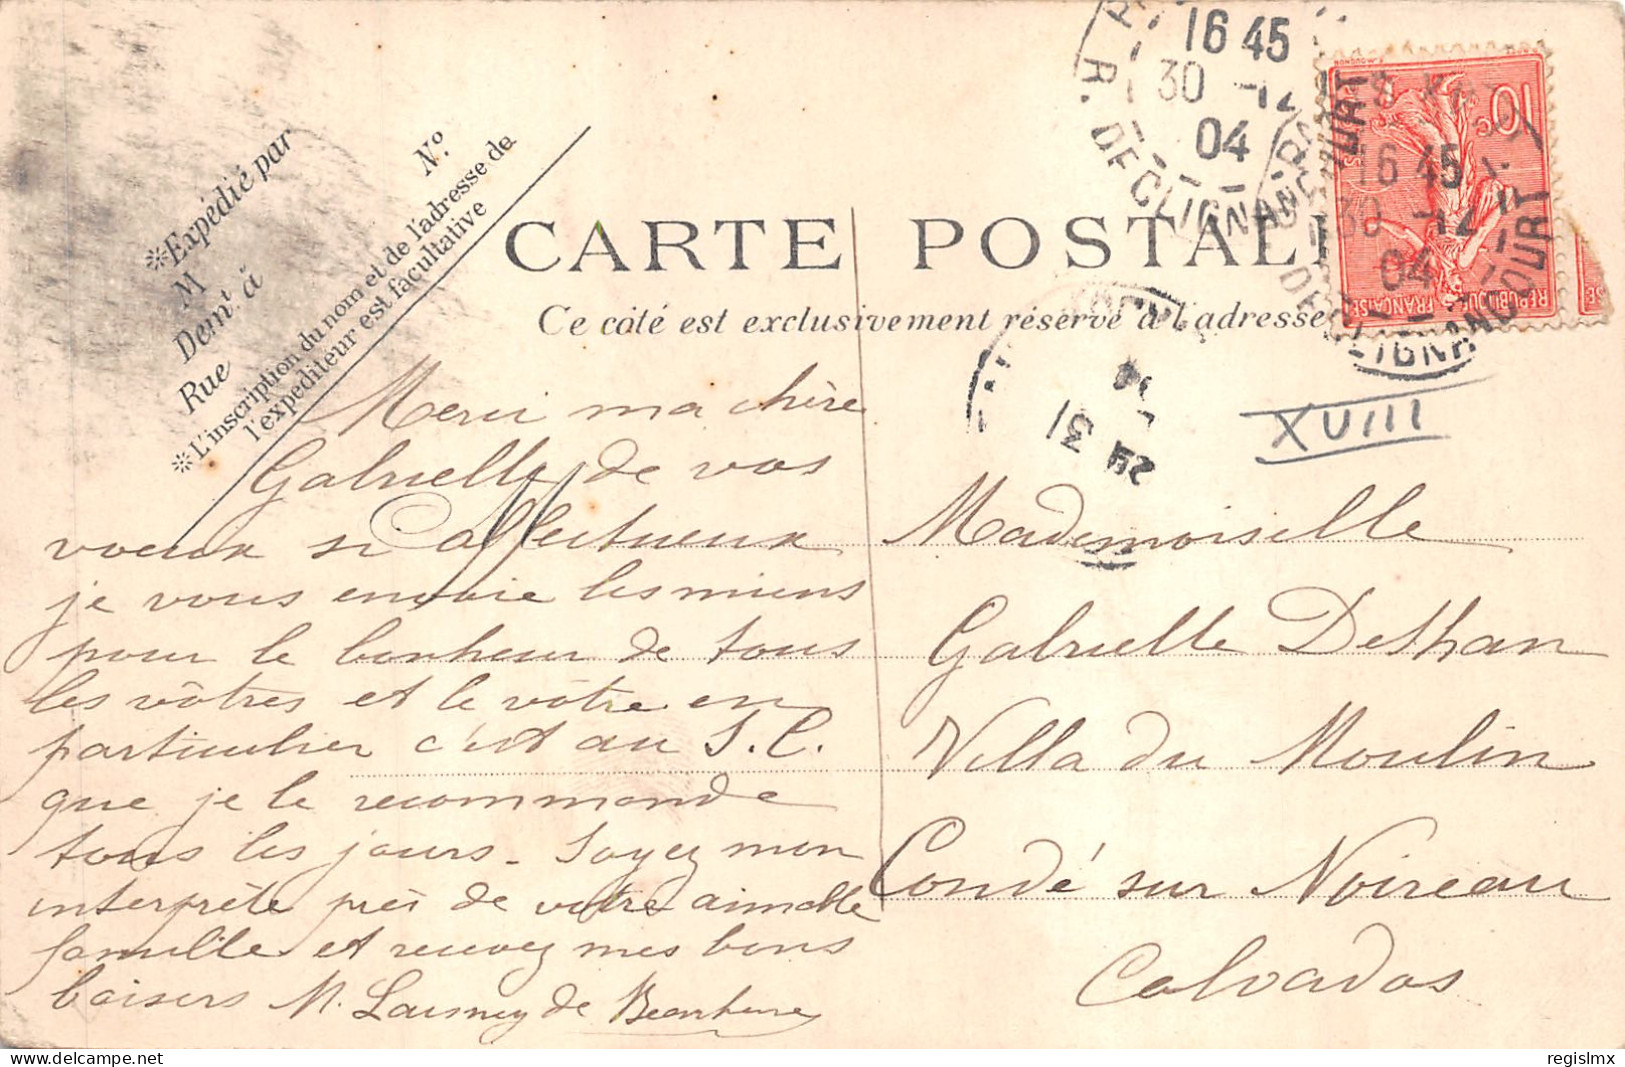 ※Expédié par
M
Demt à
Rue
No.
※L'inscription du nom et de l'adresse de
l'expéditeur est facultative
CARTE POSTAL
Ce côté est exclusivement réservé à l'adresse
16 45
30 -12
04
R. DE CLIGNANCOURT
16 45
30 -12
04
DE CLIGNANCOURT
10c
REPUBLIQUE FRANÇAISE
31
XVIII
Merci ma chère
Gabrielle de vos
voeux si affectueux
je vous envoie les miens
pour le bonheur de tous
les vôtres et le vôtre en
particulier c'est au S. C.
que je le recommande
tous les jours - Soyez mon
interprète près de votre aimable
famille et recevez mes bons
baisers M. Laisney de
Mademoiselle
Gabrielle Deshan
Villa du Moulin
Condé sur Noireau
Calvados
regislmx